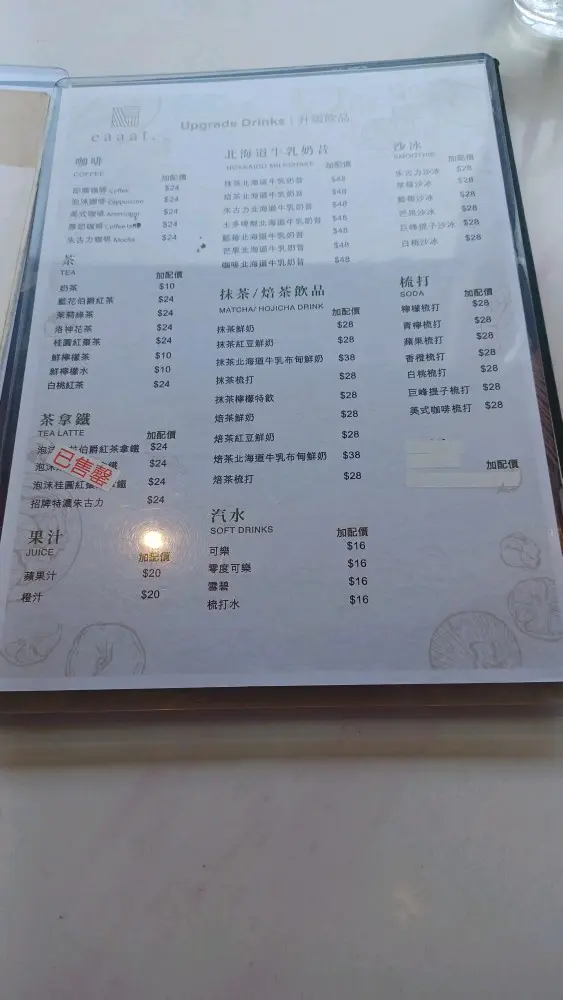 eaaat.
Upgrade Drinks | 升級飲品
咖啡
COFFEE
加配價
即磨咖啡 Coffee $24
泡沫咖啡 Cappuccino $24
美式咖啡 Americano $24
$24
朱古力咖啡 Mocha $24
茶
TEA
加配價
奶茶 $10
藍花伯爵紅茶 $24
茉莉綠茶 $24
洛神花茶 $24
桂圓紅棗茶 $24
鮮檸檬茶 $10
鮮檸檬水 $10
白桃紅茶 $24
茶拿鐵
TEA LATTE
加配價
泡沫 花伯爵紅茶拿鐵 $24
泡沫 鐵 $24
已售罄
泡沫桂圓紅棗 鐵 $24
招牌特濃朱古力 $24
果汁
JUICE
加配價
蘋果汁 $20
橙汁 $20
北海道牛乳奶昔
HOKKAIDO MILKSHAKE
加配價
抹茶北海道牛乳奶昔 $48
焙茶北海道牛乳奶昔 $48
朱古力北海道牛乳奶昔 $48
士多啤梨北海道牛乳奶昔 $48
藍莓北海道牛乳奶昔 $48
芒果北海道牛乳奶昔 $48
咖啡北海道牛乳奶昔 $48
抹茶/焙茶飲品
MATCHA/ HOJICHA DRINK
加配價
抹茶鮮奶 $28
抹茶紅豆鮮奶 $28
抹茶北海道牛乳布甸鮮奶 $38
抹茶梳打 $28
抹茶檸檬特飲 $28
焙茶鮮奶 $28
焙茶紅豆鮮奶 $28
焙茶北海道牛乳布甸鮮奶 $38
焙茶梳打 $28
汽水
SOFT DRINKS
加配價
可樂 $16
零度可樂 $16
雪碧 $16
梳打水 $16
沙冰
SMOOTHIE
加配價
朱古力沙冰 $28
草莓沙冰 $28
藍莓沙冰 $28
芒果沙冰 $28
巨峰提子沙冰 $28
白桃沙冰 $28
梳打
SODA
加配價
檸檬梳打 $28
青檸梳打 $28
蘋果梳打 $28
香橙梳打 $28
白桃梳打 $28
巨峰提子梳打 $28
美式咖啡梳打 $28
加配價